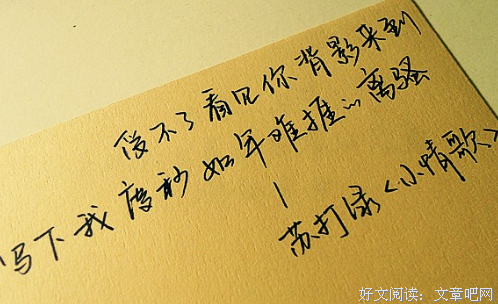 受不了看见你背影来到
写下我度秒如年难捱的离骚
—苏打绿<小情歌>
好文阅读：文章吧网